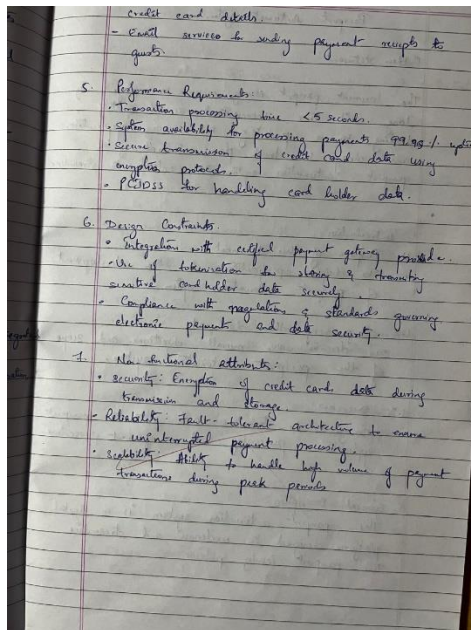 credit card details.
- Email services for sending payment receipts to
guests.
5. Performance Requirements:
• Transaction processing time < 5 seconds.
• System availability for processing payments 99.99 %
• Secure transmission of credit card data using
encryption protocols.
• PCIDSS for handling card holder data.
6. Design Constraints.
• Integration with payment gateway
• Use of tokenisation for storing & transmitting
sensitive cardholder data securely.
• Compliance with regulations & standards governing
electronic payment and data security.
7. Non functional attributes:
• Security: Encryption of credit card data during
transmission and storage.
- Reliability: Fault-tolerant architecture to
uninterrupted payment processing.
• Scalability: Ability to handle high volume of payment
transactions during peak periods